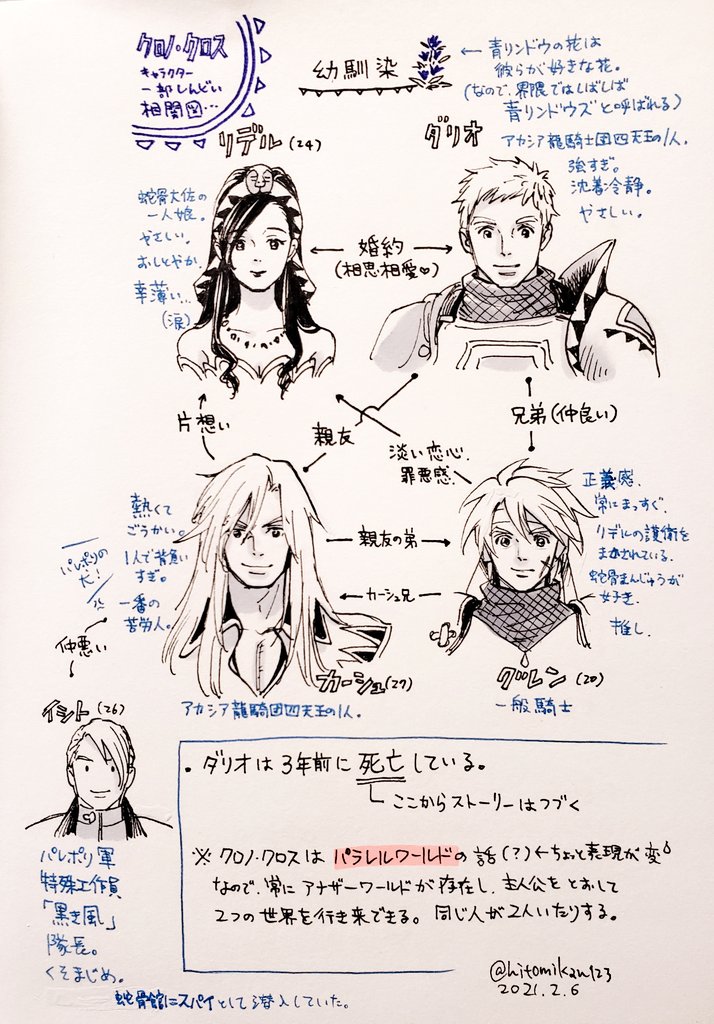 クロノ・クロス
キャラクター
一部しんどい
相関図…
幼馴染
←青リンドウの花は
彼らが好きな花。
(なので、界隈ではしばしば
青リンドウズと呼ばれる)
リデル(24)
ダリオ
アカシア龍騎士団四天王の1人。
強すぎ。
沈着冷静。
やさしい。
蛇骨大佐の
一人娘。
やさしい。
おしとやか。
幸薄い…
(涙)
婚約
(相思相愛♡)
片想い
親友
淡い恋心。
罪悪感。
兄弟(仲良い)
熱くて
ごうかい。
1人で背負い
すぎ。
一番の
苦労人。
パレポリの
犬!
仲悪い
親友の弟
カーシュ兄
正義感。
常にまっすぐ。
リデルの護衛を
まかされている。
蛇骨まんじゅうが
好き。
推し。
カーシュ(27)
アカシア龍騎団四天王の1人。
グレン(20)
一般騎士
イシト(26)
パレポリ軍
特殊工作員
「黒き風」
隊長。
くそまじめ。
蛇骨館にスパイとして潜入していた。
・ダリオは3年前に死亡している。
ここからストーリーはつづく
※クロノ・クロスはパラレルワールドの話(?)←ちょっと表現が変
なので、常にアナザーワールドが存在し、主人公をとおして
2つの世界を行き来できる。同じ人が2人いたりする。
@hitomikan123
2021.2.6